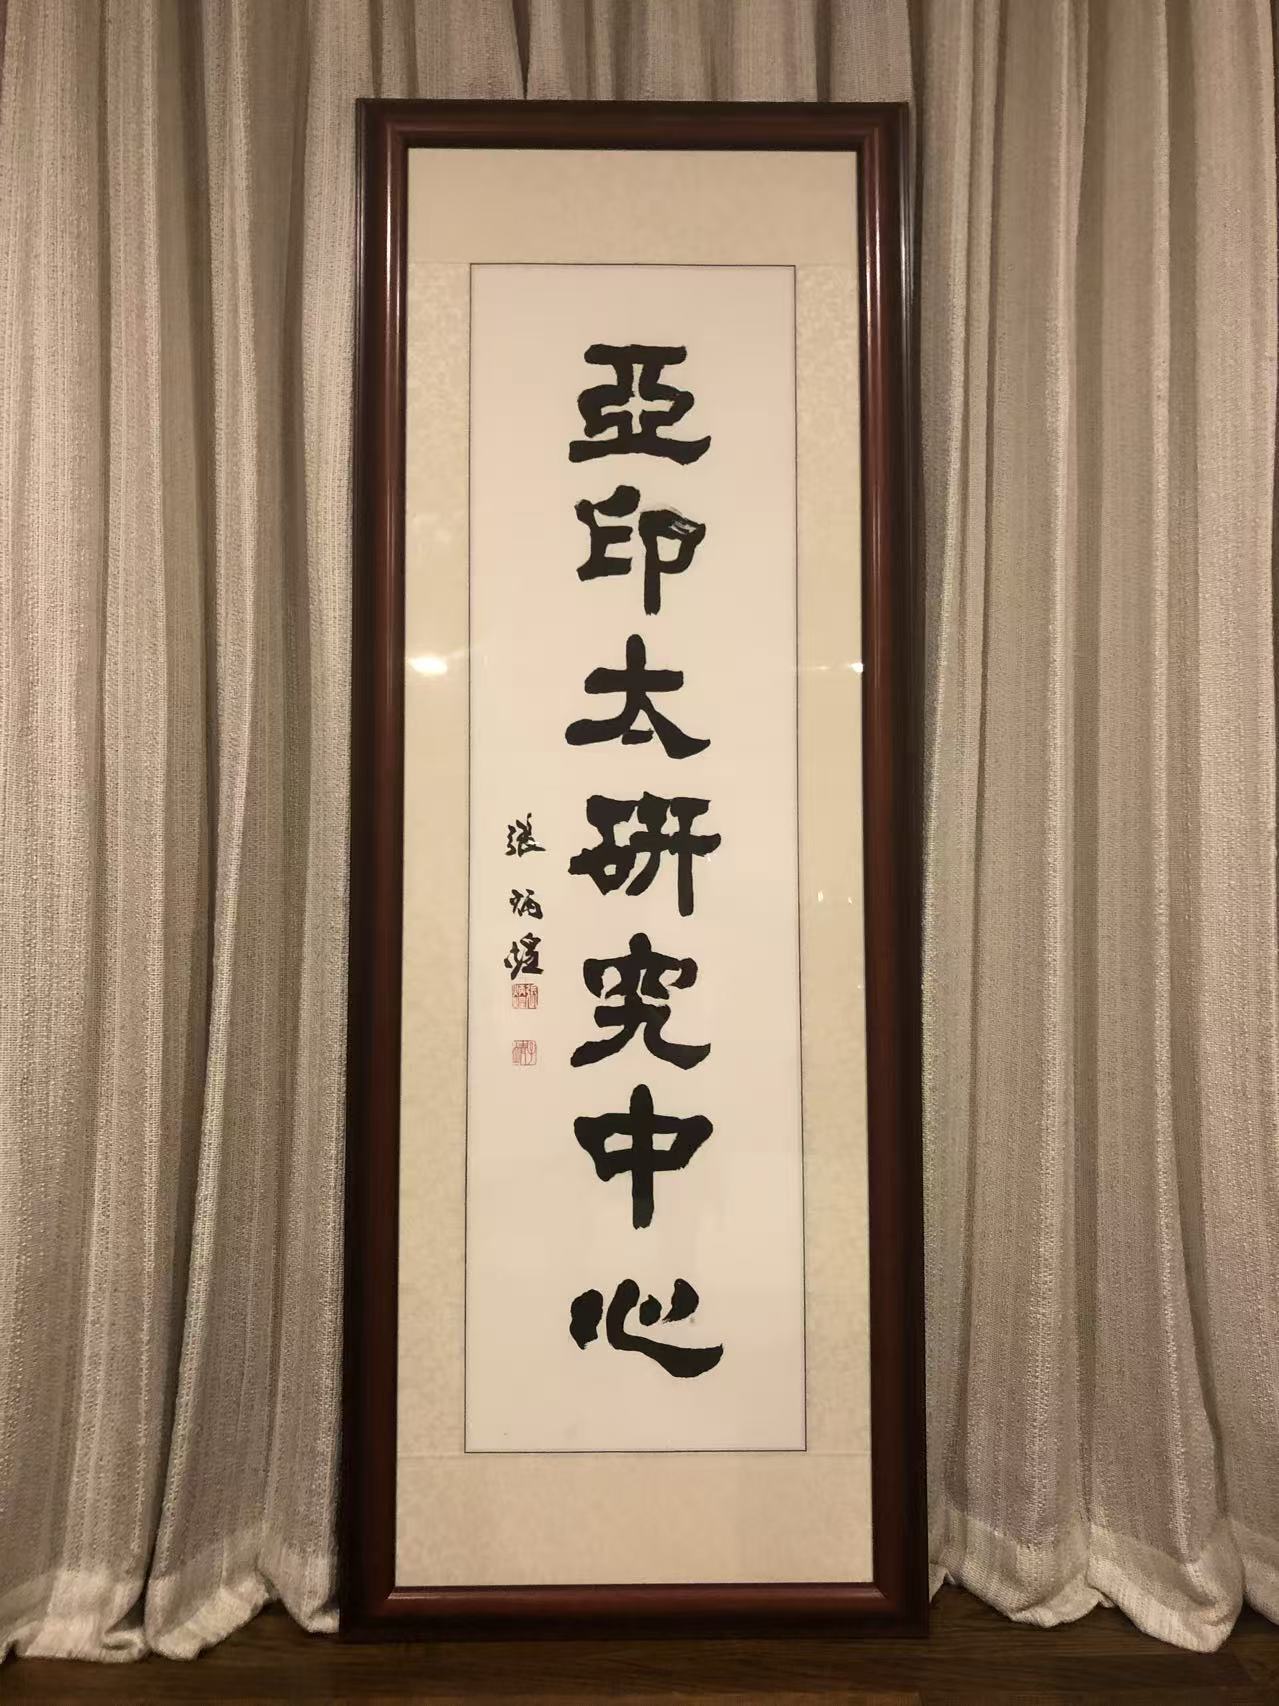 亞印太研究中心
張炳煌